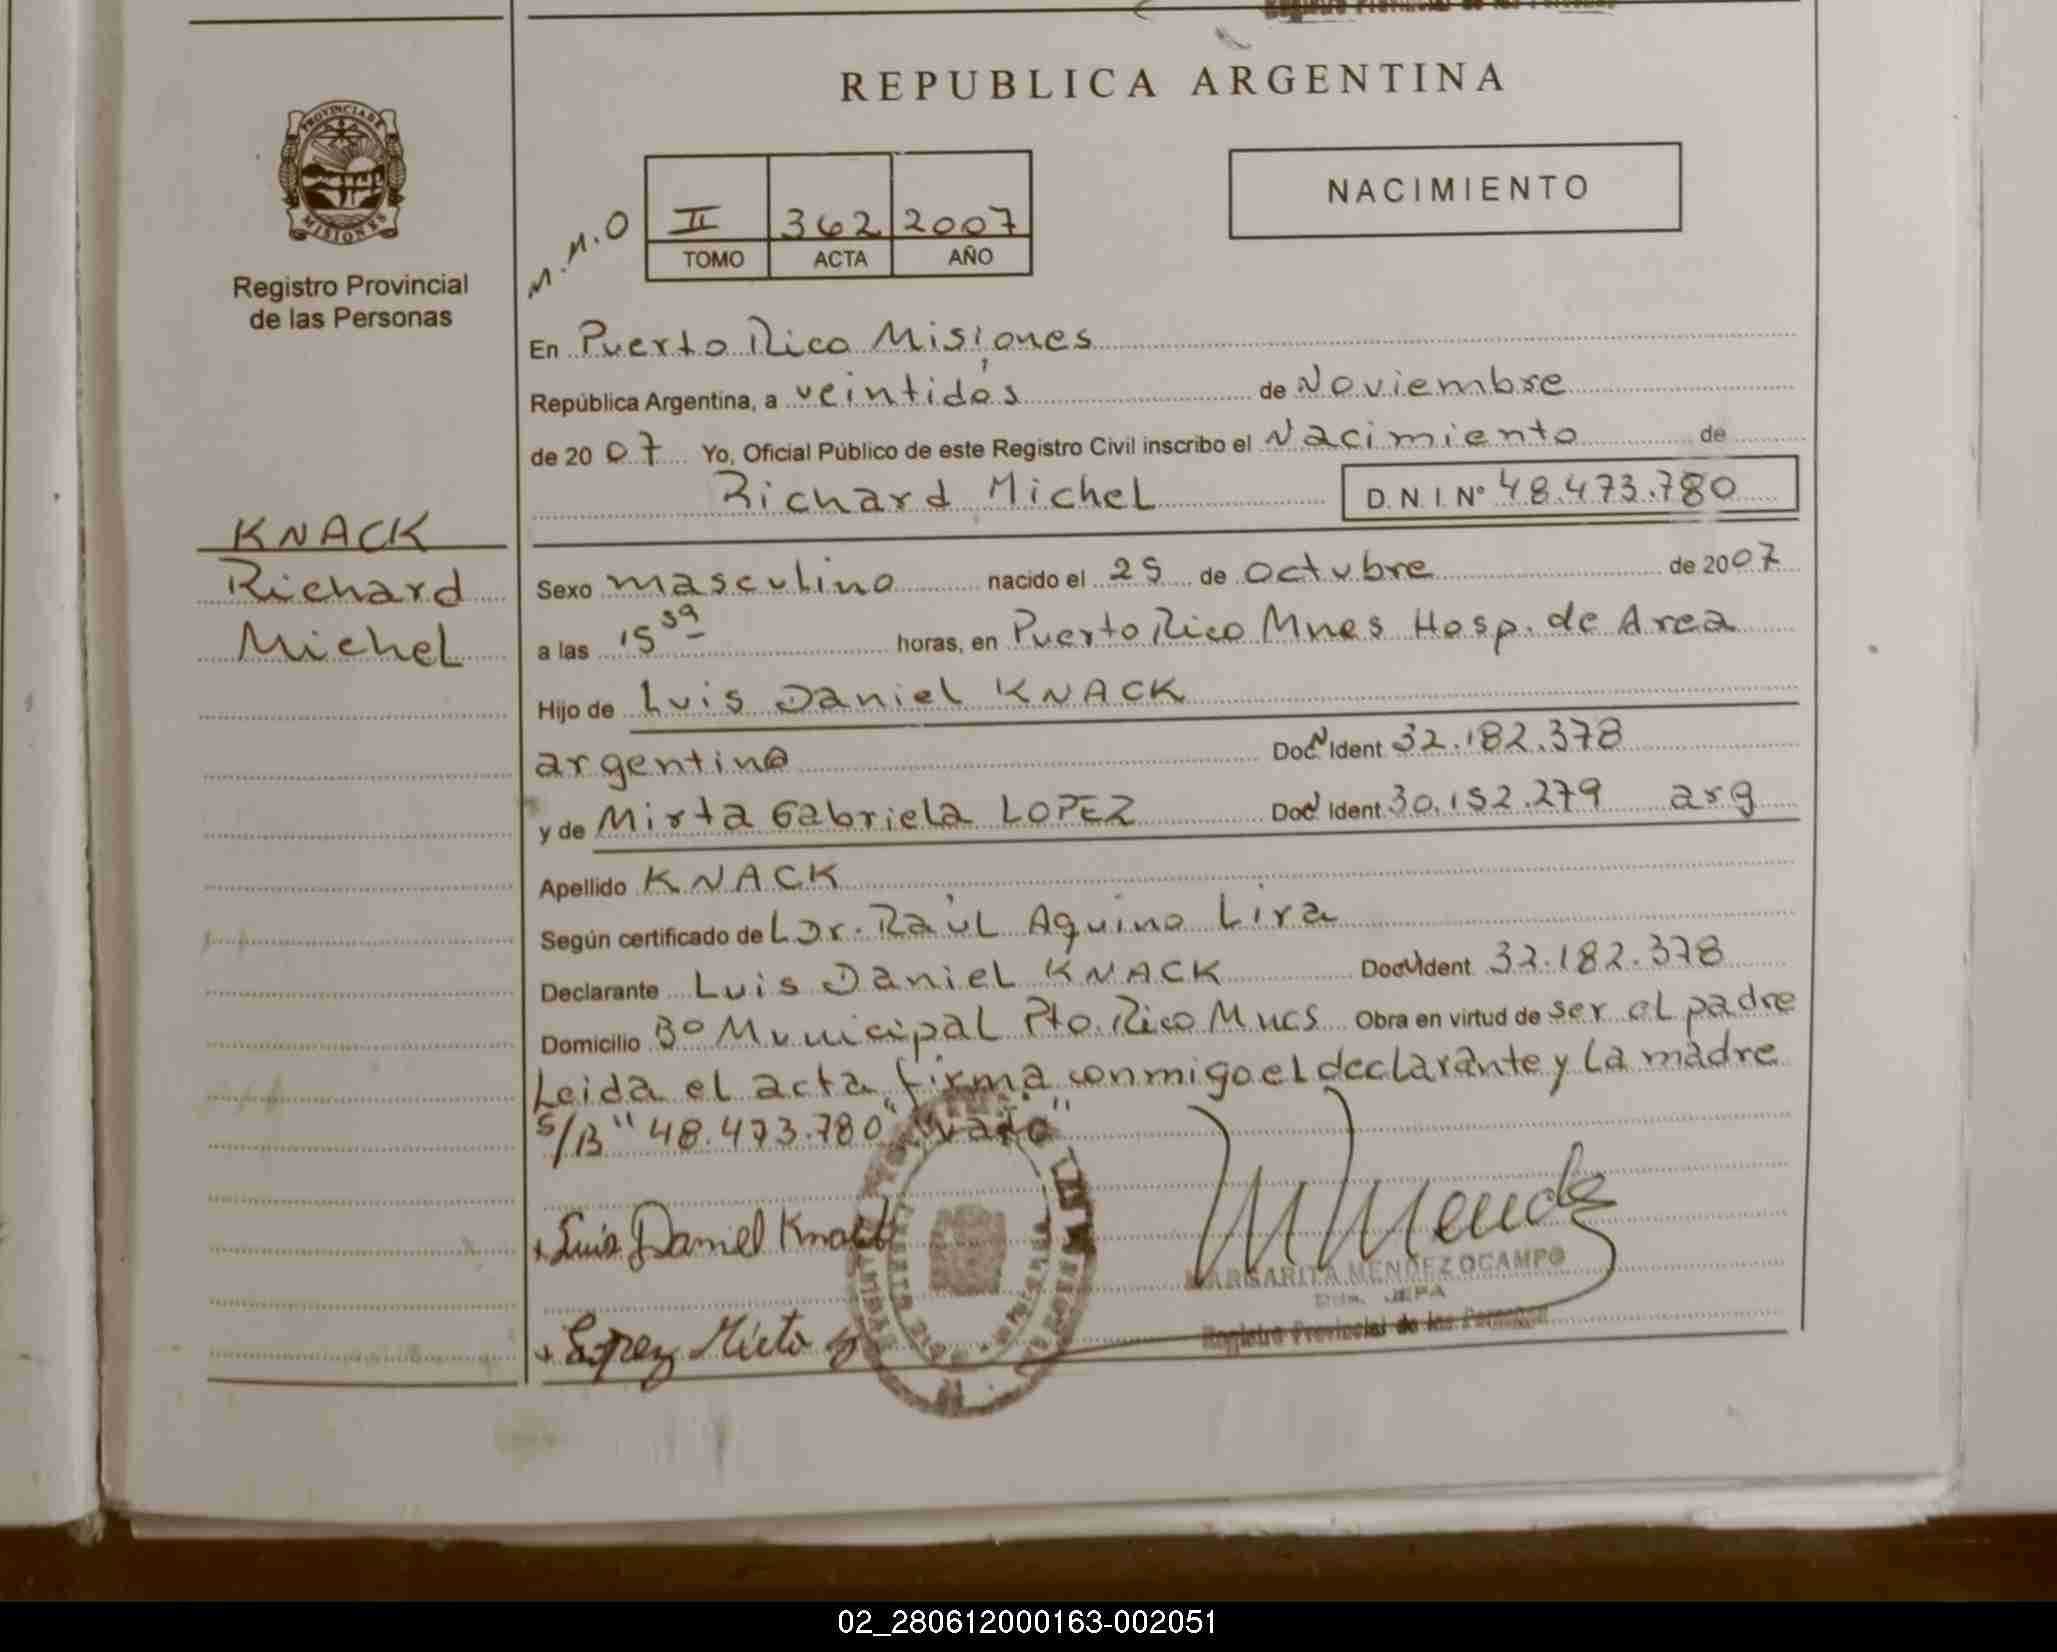 REPUBLICA ARGENTINA
PROVINCIA DE
MISIONES
Registro Provincial
de las Personas
M.N.O
II 362 2007
TOMO ACTA AÑO
NACIMIENTO
En Puerto Rico Misiones
República Argentina, a veintidós de Noviembre
de 2007 Yo, Oficial Público de este Registro Civil inscribo el Nacimiento de
Richard Michel D.N.I. Nº 48.473.780
KNACK
Richard
Michel
Sexo masculino nacido el 25 de octubre de 2007
a las 15 horas, en Puerto Rico Mnes Hosp. de Area
Hijo de Luis Daniel KNACK
argentino Doc N Ident 32.182.378
y de Mirta Gabriela LOPEZ Doc N Ident 30.152.279 arg
Apellido KNACK
Según certificado de L Dr. Raúl Aquino Lira
Declarante Luis Daniel KNACK Doc N Ident 32.182.378
Domicilio Bº Municipal Pto. Rico Mnes Obra en virtud de ser el padre
Leida el acta firma conmigo el declarante y La madre
S/B "48.473.780"
Luis Daniel Knack
Lopez Mirta
MARGARITA MENDEZ OCAMPO
JEFA
Registro Provincial de las Personas
02_280612000163-002051